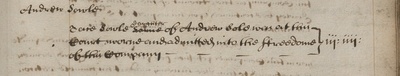 Andrew Sowle.
Jane Sowle Daughter of Andrew Sole was at this
Court made and admitted into the ffreedome
of this Company
iij: iiij: